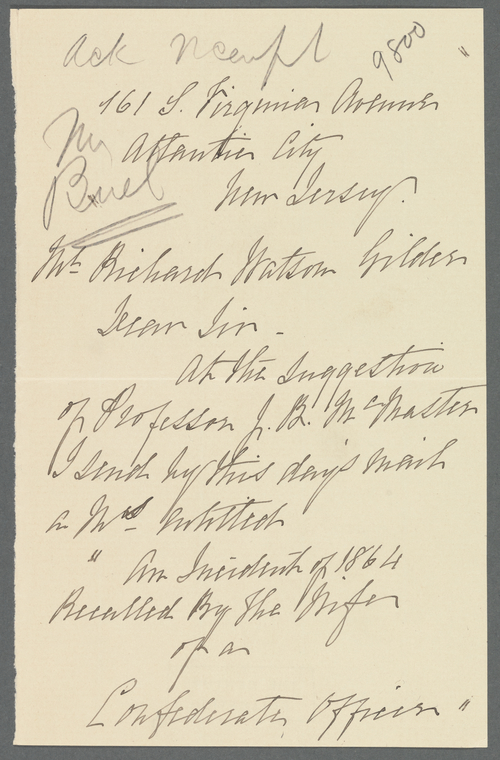 Ack receipt
9800
"
161 S. Virginia Avenue
Mr
Buel
Atlantic City
New Jersey.
Mr. Richard Watson Gilder
Dear Sir -
At the suggestion
of Professor J. B. McMaster
I send by this day's mail
a Ms. entitled
" An Incident of 1864
Recalled By the Wife
of a
Confederate Officer "